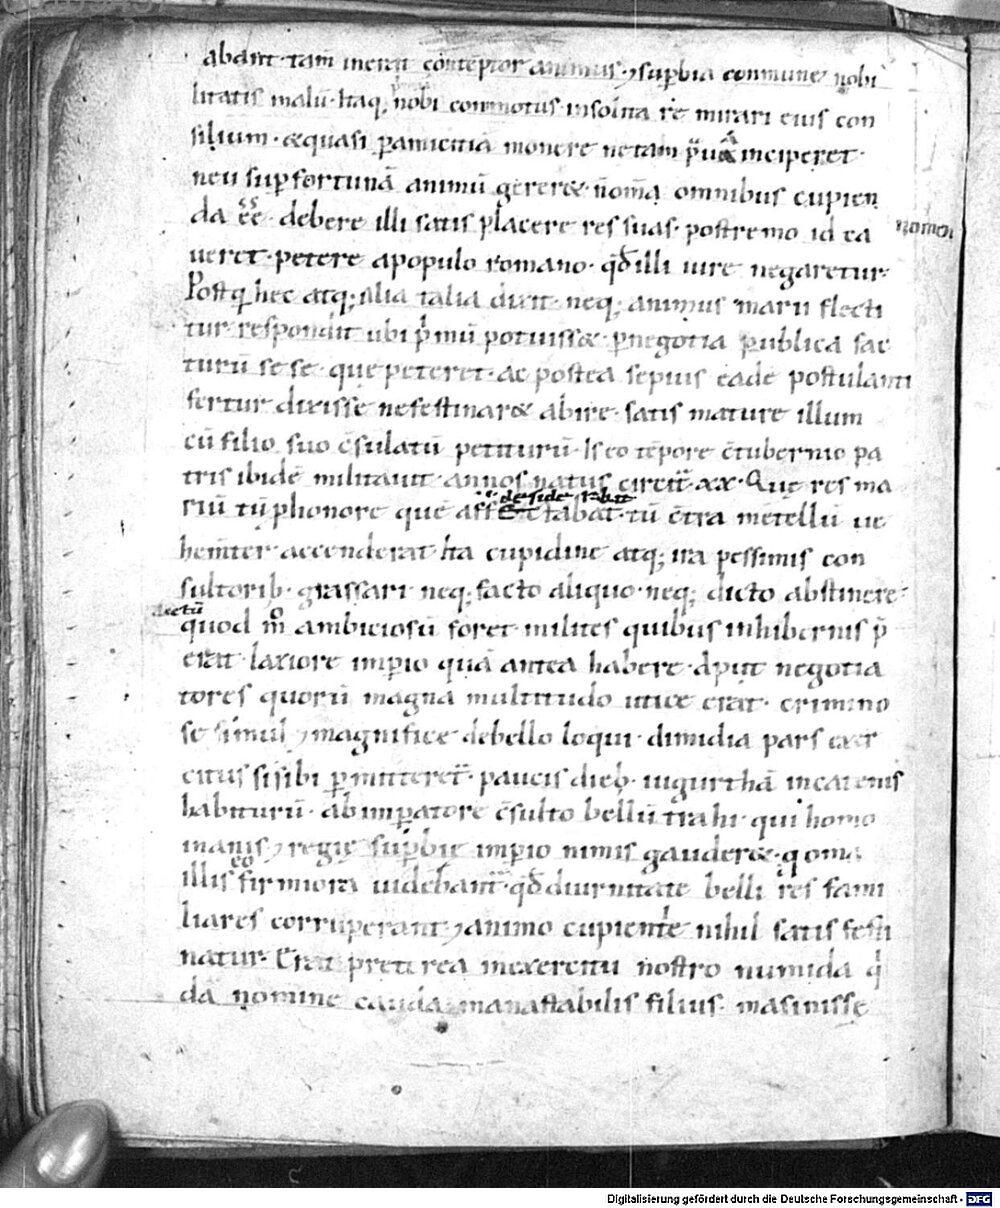 abant· tam inerat contẽptor animus ⁊ supbia commune nobi
litatis malũ· Itaq; nobi commotus insolita re mirari eius con
silium· &quasi pamicitiã monere ne tam p̃uã inciperet·
neu sup fortunã animũ gerer&· ñ om̃a omnibus cupien
da ẽe· debere illi satis placere res suas· postremo id ca
nomen
ueret· petere apopulo romano· qđ illi iure negaretur·
Postq̃ hec atq; alia talia dixit· neq; animus marii flecti
tur respondit ubi p̃mũ potuiss&· pnegotia publica fac
turũ se se· que peteret· ac postea sepius eadẽ postulanti
fertur dixisse ne festinar& abire· satis mature illum
cũ filio suo c̃sulatũ petiturũ· Is eo tẽpore c̃tubernio pa
tris ibidẽ militauit· annos natus circit̃ xx· Quę res ma
desiderabat
riũ tũ phonore quẽ affectabat· tũ c̃tra metellũ ue
hem̃ter accenderat· Ita cupidine atq; ira pessimis con
sultorib· grassari· neq; facto aliquo· neq; dicto abstinere·
quod m̊ ambiciosũ foret· milites quibus inhibernis p̃
erat· laxiore impio quã antea habere· apud negotia
tores quorũ magna multitudo uticę erat· crimino
se simul ⁊ magnifice debello loqui· dimidia pars exer
citus si sibi pmitteret̃· paucis dieb· iugurthã incatenis
habiturũ· ab impatore c̃sulto bellũ trahi· qui homo
inanis ⁊ regię supbię impio nimis gauder&· q oma
illis eo firmiora uidebant̃· qđ diurnitate belli res fami
liares corruperant ⁊ animo cupiente nihil satis festi
natur· Erat preterea inexercitu nostro numida q
dã nomine cauda manastabilis filius· masinisse